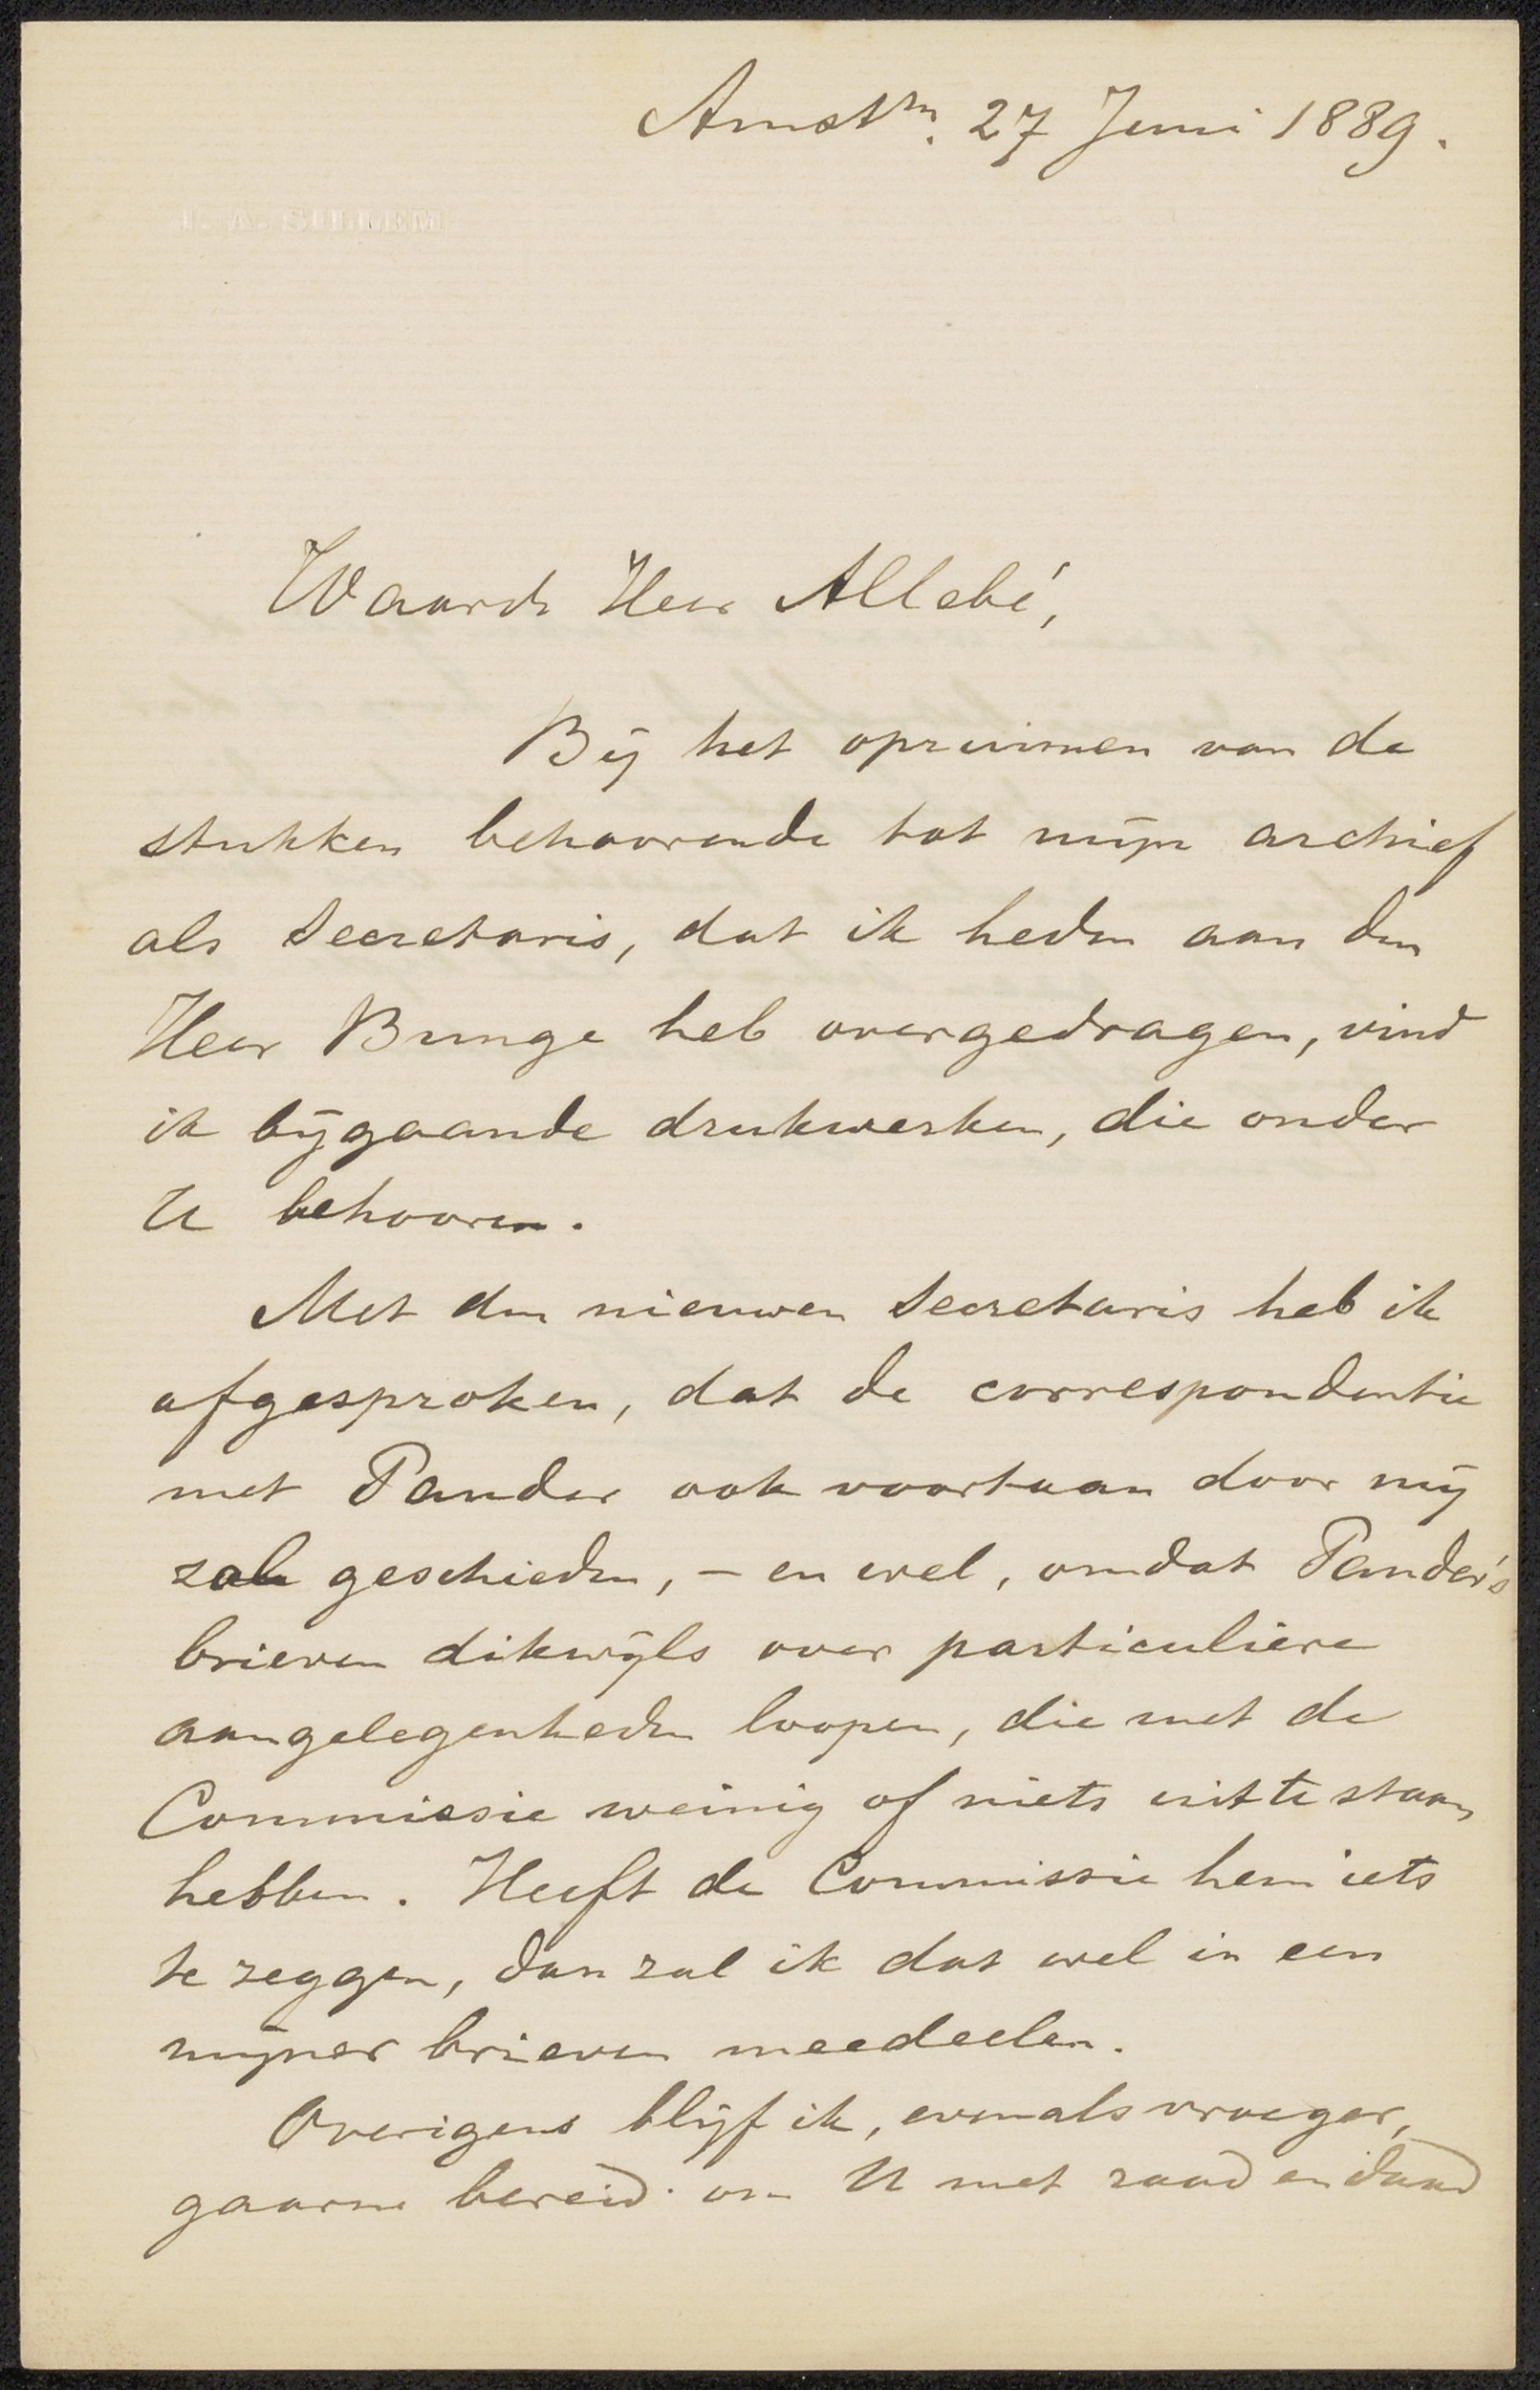 Amstm. 27 Juni 1889.
J. A. SILLEM
Waarde Heer Allebé,
Bij het opruimen van de
stukken behoorende tot mijn archief
als Secretaris, dat ik heden aan den
Heer Bunge heb overgedragen, vind
ik bijgaande drukwerken, die onder
U behooren.
Met den nieuwen Secretaris heb ik
afgesproken, dat de correspondentie
met Pander ook voortaan door mij
zal geschieden, - en wel, omdat Pander's
brieven dikwijls over particuliere
aangelegenheden loopen, die met de
Commissie weinig of niets uit te staan
hebben. Heeft de Commissie hem iets
te zeggen, dan zal ik dat wel in een
mijner brieven meedeelen.
Overigens blijf ik, evenals vroeger,
gaarne bereid om U met raad en daad